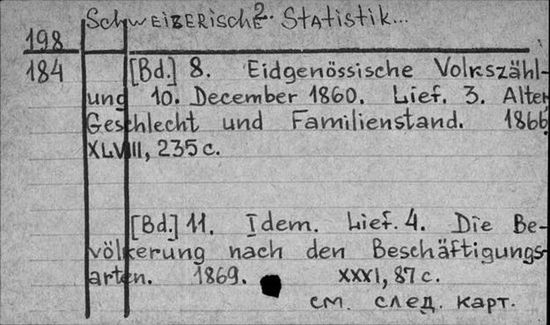 Schweizerische Statistik... 2.
198
184 [Bd.] 8. Eidgenössische Volkszähl-
ung 10. December 1860. Lief. 3. Alter
Geschlecht und Familienstand. 1866
XLVIII, 235 с.
[Bd.] 11. Idem. Lief. 4. Die Be-
völkerung nach den Beschäftigungs-
arten. 1869. XXXI, 87 с.
см. след. карт.